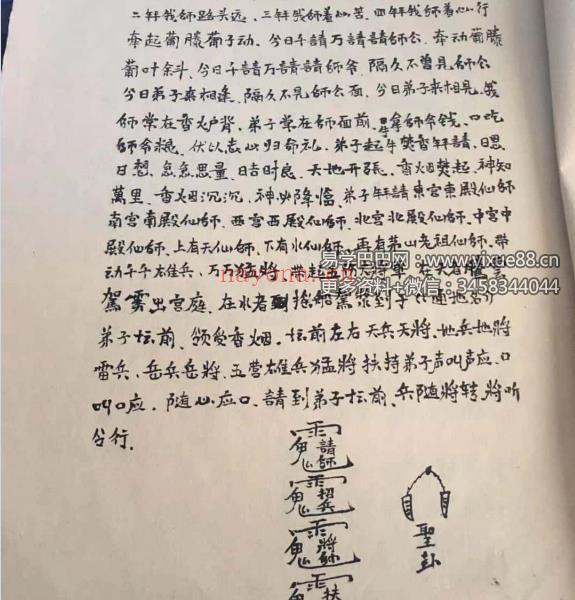 二拜我師路头远、三拜我師着心苦、四拜我師着心行
牵起葡藤葡子动、今日千請万請請師公、牵动葡藤
葡叶余斗、今日千請万請請師爷、隔久不曾見師公
今日弟子来相逢、隔久不見師公面、今日弟子来相見、我
師常在香炉背、弟子常在師面前、拿師爷钱、口吃
師爷穩、伏以志心归命礼、弟子起年焚香年請、日思
日想、急急思量、日吉时良、天地开张、香烟焚起、神知
萬里、香烟沉沉、神必降臨、弟子年請東宫東殿仙師
南宫南殿仙師、西宫西殿仙師、北宫北殿仙師、中宫中
殿仙師、上有天仙師、下有水仙師、再有茅山老祖仙師、带
动千千雄兵、万万猛將、带起
駕雲出宫庭、在水者
弟子坛前、領受香烟、坛前左右天兵天將、地兵地將
雷兵、岳兵岳將、五营雄兵猛將扶持弟子声叫声应、口
叫口应、隨心应口、請到弟子坛前、兵随將转、將听
令行、
請師
招兵
將師
扶
聖卦
易学巴巴网-www.yixue88.cn
更多资料+微信:3458344044
nayona.cn